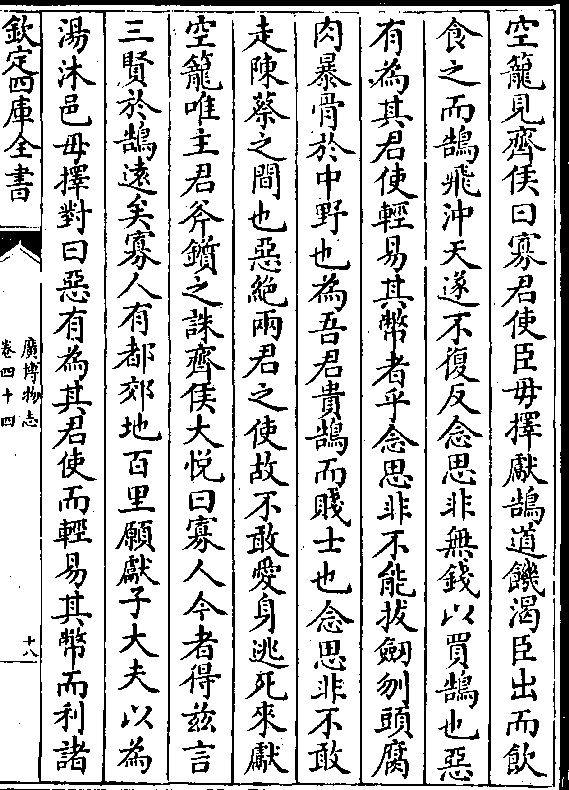 空籠見齊侯曰寡君使臣毋擇獻鵠道饑渴臣出而飲
食之而鵠飛沖天遂不復反念思非無錢以買鵠也惡
有為其君使輕易其幣者乎念思非不能拔劒刎頭腐
肉暴骨於中野也為吾君貴鵠而賤士也念思非不敢
走陳蔡之間也惡絶兩君之使故不敢愛身逃死來獻
空籠唯主君斧鑕之誅齊侯大悦曰寡人今者得兹言
三賢於鵠逺矣寡人有都郊地百里願獻子大夫以為
湯沐邑毋擇對曰惡有為其君使而輕易其幣而利諸
欽定四庫全書
廣博物志
卷四十四
十八